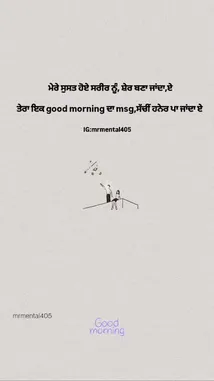 ਮੇਰੇ ਸੁਸਤ ਹੋਏ ਸਰੀਰ ਨੂੰ, ਸ਼ੇਰ ਬਣਾ ਜਾਂਦਾ,ਏ
ਤੇਰਾ ਇਕ good morning ਦਾ msg,ਸੱਚੀਂ ਹਨੇਰ ਪਾ ਜਾਂਦਾ ਏ
IG:mrmental405
mrmental405
Good
morning